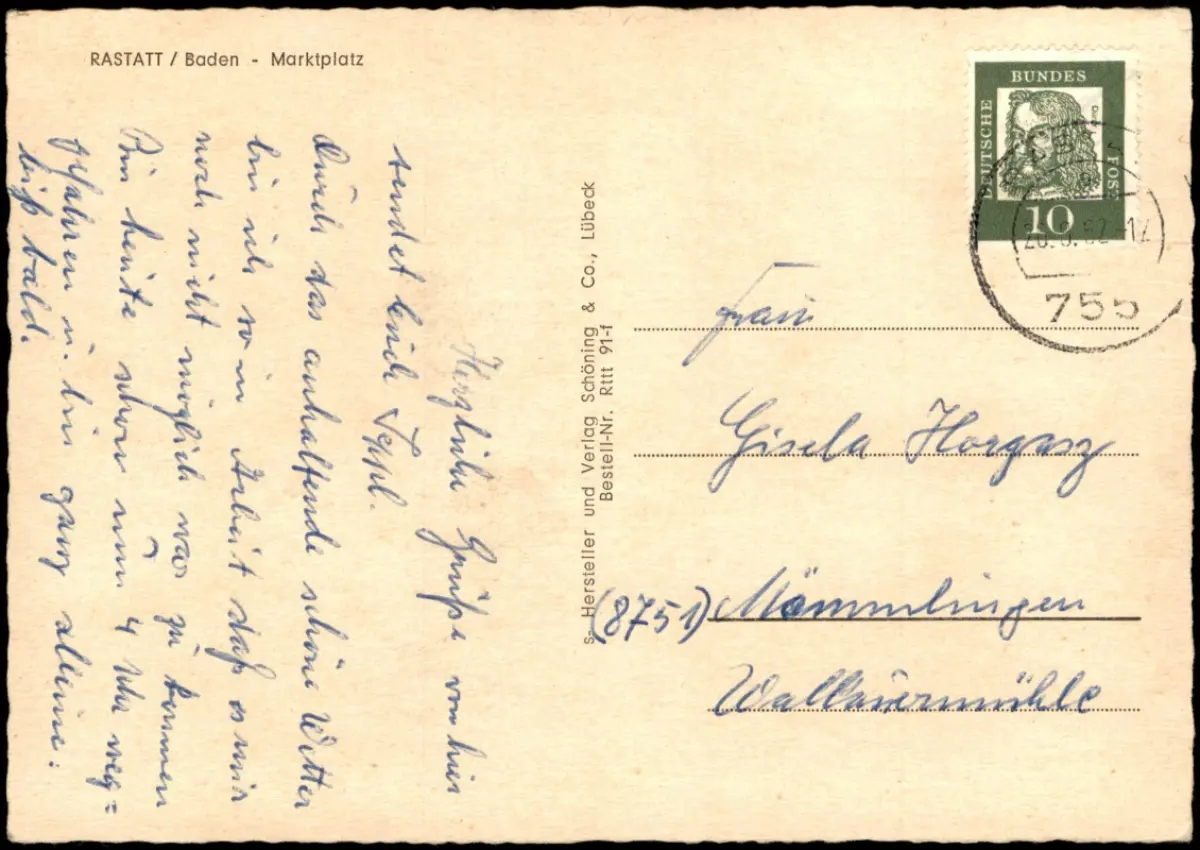 RASTATT / Baden - Marktplatz
Herzliche Grüße von hier
sendet Euch Seppl.
Durch das anhaltende schöne Wetter
bin ich so in Arbeit daß es mir
noch nicht möglich war zu kommen
Bin heute schon um 4 Uhr weg=
gefahren u. bin ganz alleine:
biß bald.
s- Hersteller und Verlag Schöning & Co., Lübeck
Bestell-Nr. Rttt 91-f
DEUTSCHE
BUNDES
POST
10
755
Frau
Gisela Horgasz
(8751) Mömmlingen
Wallauermühle